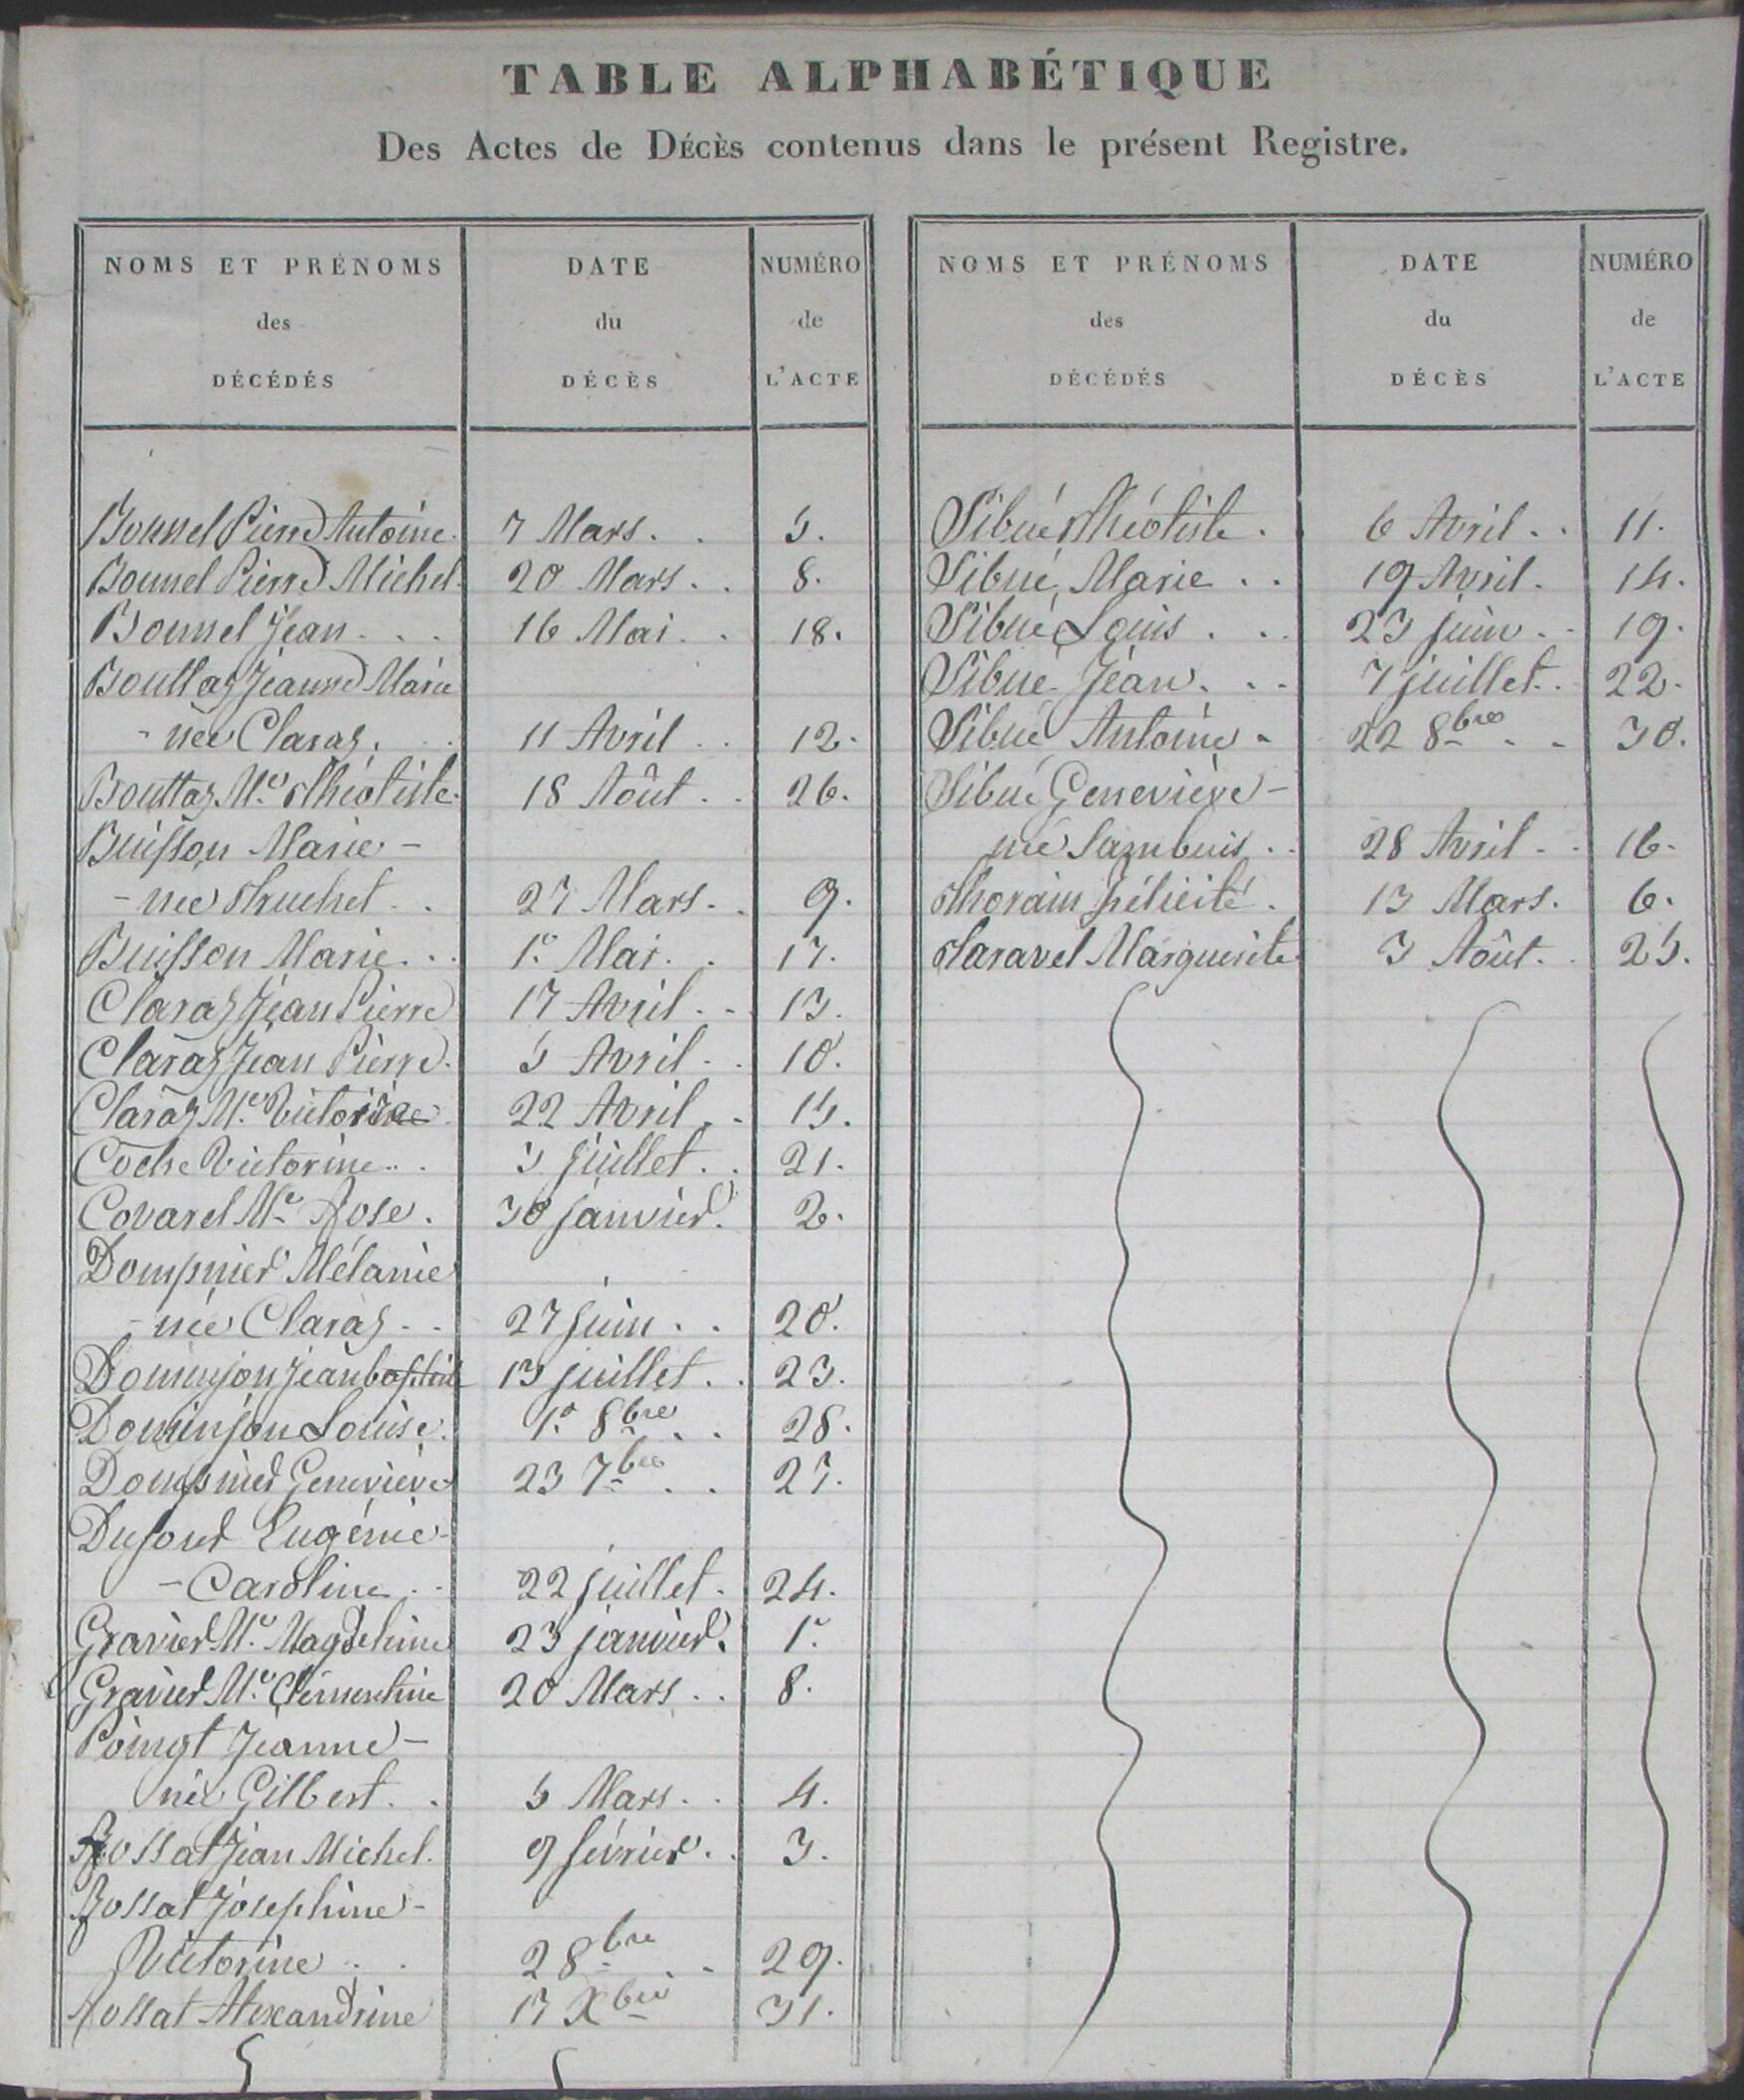 TABLE ALPHABÉTIQUE
Des Actes de DÉCÈS contenus dans le présent Registre.
NOMS ET PRÉNOMS des DÉCÉDÉS
DATE du DÉCÈS
NUMÉRO de L'ACTE
Bonnel Pierre Antoine. 7 Mars. . 5.
Bonnel Pierre Michel. 20 Mars. . 8.
Bonnel Jean. . . 16 Mai. . 18.
Bouttaz Jeanne Marie
- née Claraz. . 11 Avril . . 12.
Bouttaz Mie Théotiste. 18 Août . . 26.
Buisson Marie -
- née Truchet . . 27 Mars. . 9.
Buisson Marie. . . 1er Mai. . 17.
Claraz Jean Pierre 17 Avril . - 13.
Claraz Jean Pierre. 5 Avril . . 10.
Claraz Mie Victorine 22 Avril . - 15.
Coche Victorine. . . 5 juillet. . 21.
Covarel Mie Rose. 30 janvier. 2.
Dompnier Mélanie
- née Claraz . . 27 juin . . 20.
Dominjon Jean baptiste 13 juillet . . 23.
Dominjon Louise. 1er 8bre . . 28.
Dompnier Geneviève 23 7bre . . 27.
Dufour Eugénie -
- Caroline . . 22 juillet. 24.
Gravier Mie Magdeleine 23 janvier. 1er
Gravier Mie Clémentine 20 Mars . . 8.
Poingt Jeanne -
née Gilbert. . 5 Mars. . 4.
Rossat Jean Michel. 9 février. . 3.
Rossat Joséphine -
Victorine . . 2 8bre . - 29.
Rossat Alexandrine 17 Xbre 31.
NOMS ET PRÉNOMS des DÉCÉDÉS
DATE du DÉCÈS
NUMÉRO de L'ACTE
Sibué Théotiste . 6 Avril . . 11.
Sibué Marie . . 19 Avril. 14.
Sibué Louis . . . 23 juin . . 19.
Sibué Jean. . . 7 juillet. . 22.
Sibué Antoine - 22 8bre . - 30.
Sibué Geneviève -
née Sambuis . . 28 Avril - . 16.
Thorain Félicité. 13 Mars. 6.
Taravel Marguerite 3 Août. . 25.